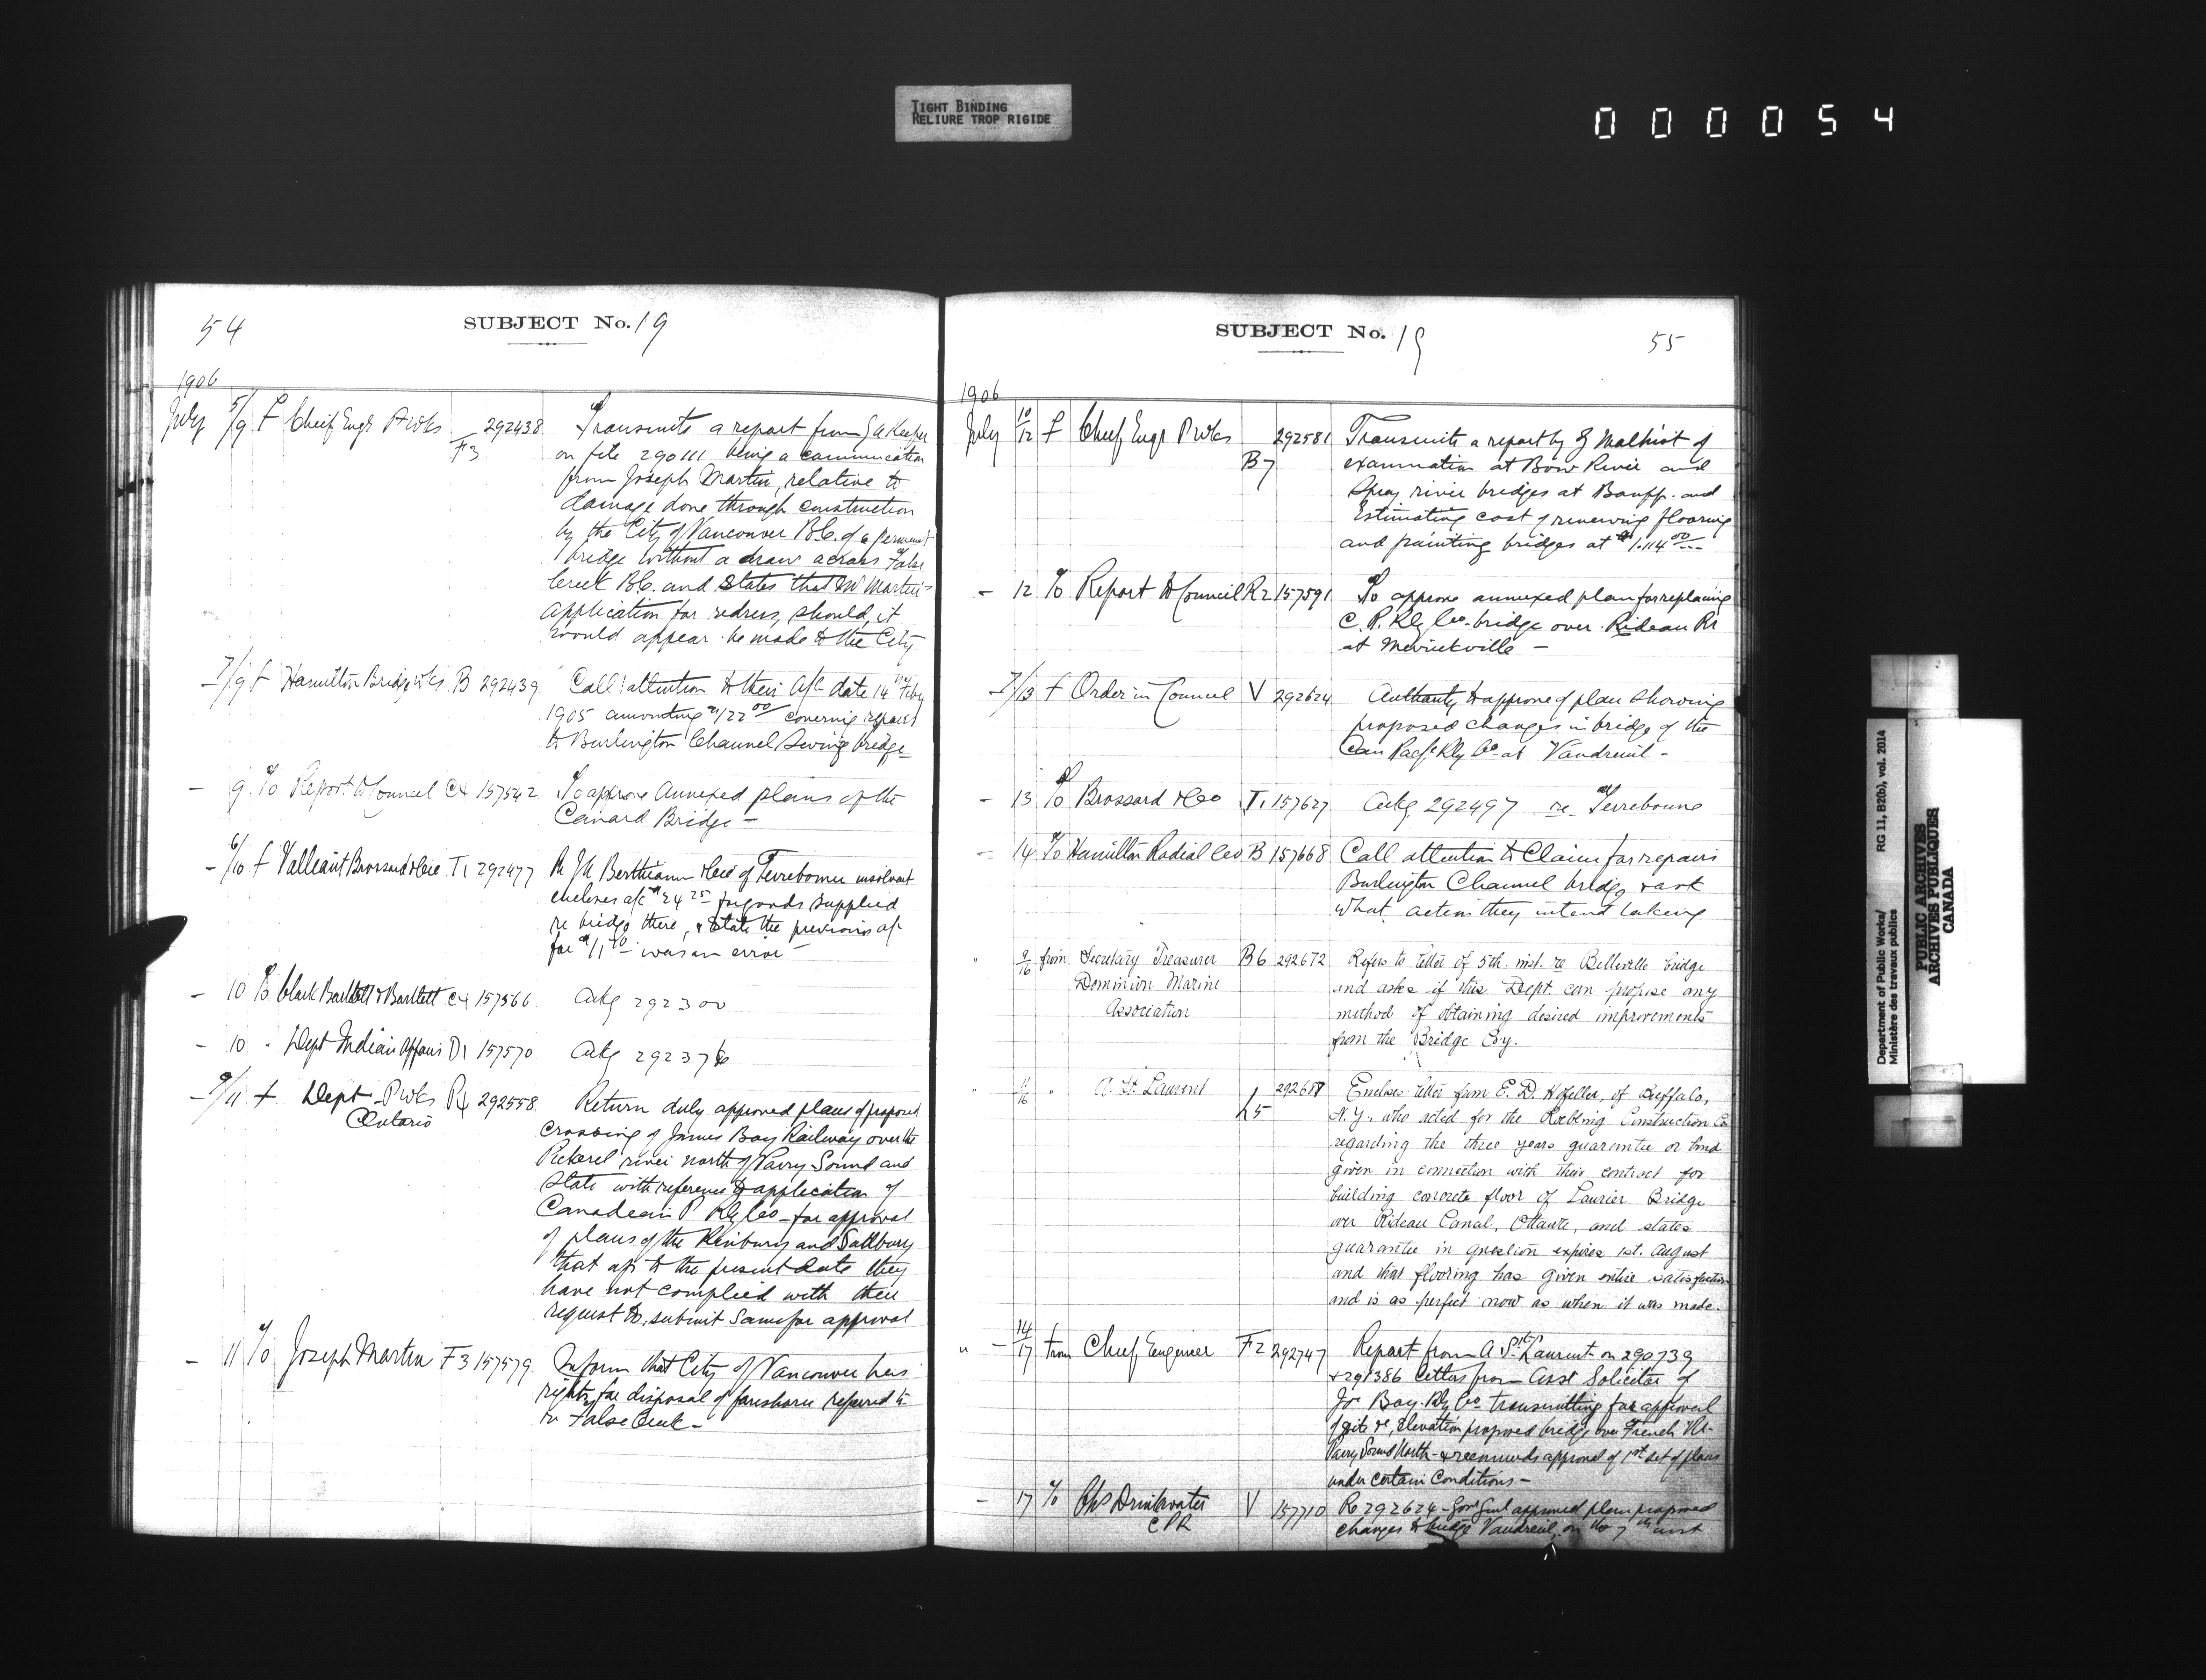 TIGHT BINDING
RELIURE TROP RIGIDE
000054
54
SUBJECT No. 19
1906
July 5/9 f Cheif Engr P Wks F3 292438 Transmits a report from
on file 290111 being a communication
from Joseph Martin, relative to
damage done through construction
by the City of Vancouver B.C. of a permanent
bridge without a draw across False
Creek B.C. and States that Mr Martin's
application for redress, should, it
would appear be made to the City
- 7/9 f Hamilton Bridge Wks B 292439 Call attention to their a/c date 14th Feby
1905 amounting $122 00 covering repairs
to Burlington Channel Swing bridge -
- 9 To Report to Council C4 157542 To approve Annexed plans of the
Canard Bridge -
- 6/10 f Valleant Brossard & Cie T1 292477 Re Berthiaume & Cie of Terrebonne insolvent
encloses a/c $24 25 for goods supplied
re bridge there, & state the previous a/c
for was an error -
- 10 To Clark Bartlett & Bartlett C4 157566 Ackg 292300
- 10 " Dept Indian Affairs D1 157570 Ackg 292376
- 9/11 f Dept P Wks R4 292558 Return duly approved plans of proposed
Ontario
crossing of James Bay Railway over the
Pickerel river north of Parry Sound and
state with reference to application of
Canadian P Rly Co - for approval
of plans of the and Sudbury
that up to the present date they
have not complied with their
request to submit same for approval
- 11 To Joseph Martin F3 157579 Inform that City of Vancouver has
rights for disposal of foreshore referred to
in False Creek -
SUBJECT No. 19
55
1906
July 10/12 f Cheif Engr P Wks B7 292581 Transmits a report by Malhiot of
examination at Bow River and
Spray river bridges at Banff. and
Estimating cost of renewing flooring
and painting bridges at $1.114 00
- 12 To Report to Council R2 157591 To approve annexed plan for replacing
C. P. Rly Co. bridge over Rideau Rr
at Merrickville -
- 7/13 f Order in Council V 292624 Authority to approve of plan showing
proposed changes in bridge of the
Can Pacfc Rly Co at Vaudreuil -
- 13 To Brossard & Co T1 157627 Ackg 292497 re Terrebonne
- 14 To Hamilton Radial Co B 157668 Call attention to Claim for repairs
Burlington Channel bridge & ask
what action they intend taking
" 9/16 from Secretary Treasurer B6 292672 Refers to letter of 5th inst. re Belleville bridge
Dominion Marine and asks if this Dept. can propose any
Association method of obtaining desired improvements
from the Bridge Coy.
" 11/16 " A. St. Laurent L5 292687 Encloses letter from E. D. Hofeller, of Buffalo,
N.Y., who acted for the Roebling Construction Co
regarding the three years guarantee or bond
given in connection with their contract for
building concrete floor of Laurier Bridge
over Rideau Canal, Ottawa, and states
guarantee in question expires 1st. August
and that flooring has given entire satisfaction
and is as perfect now as when it was made.
" - 14/17 from Chief Engineer F2 292747 Report from A St Laurent on 290739
& 291386 letters from Asst Solicitor of
Js Bay Rly Co transmitting for approval
of site &c, elevation proposed bridge over French Rr
Parry Sound North - & recommends approval of 1st set of plans
under certain conditions -
- 17 To Chs Drinkwater V 157710 Re 292624 - Govr Genl approved plan proposed
CPR changes to bridge Vaudreuil, on the 7th inst
Department of Public Works/ RG 11, B2(b), vol. 2014
Ministère des travaux publics
PUBLIC ARCHIVES
ARCHIVES PUBLIQUES
CANADA